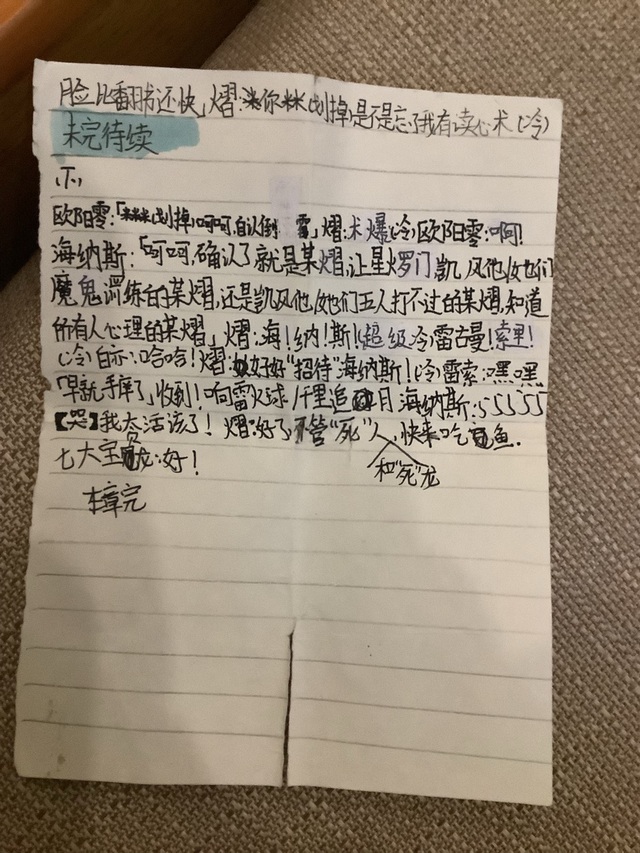 脸比翻书还快」熠:你(划掉)是不是忘了我有读心术(冷)
未完待续
下
欧阳零:「(划掉)呵呵,自认倒雷」熠:木爆(冷)欧阳零:啊!
海纳斯:「呵呵,确认了就是某熠,让星烁门凯,风他/她们
魔鬼训练的某熠,还是凯风他/她们五人打不过的某熠,知道
所有人心理的某熠」熠:海!纳!斯!(超级冷)雷古曼!索里!
(冷)白示:哈哈!熠:好好"招待"海纳斯!(冷)雷索:嘿嘿
「早就手痒了」收到!响雷火球/千里追月 海纳斯:55555
【哭】我太活该了!熠:好了不管"死"人,快来吃鱼.
和"死"龙
七大宝龙:好!
本章完